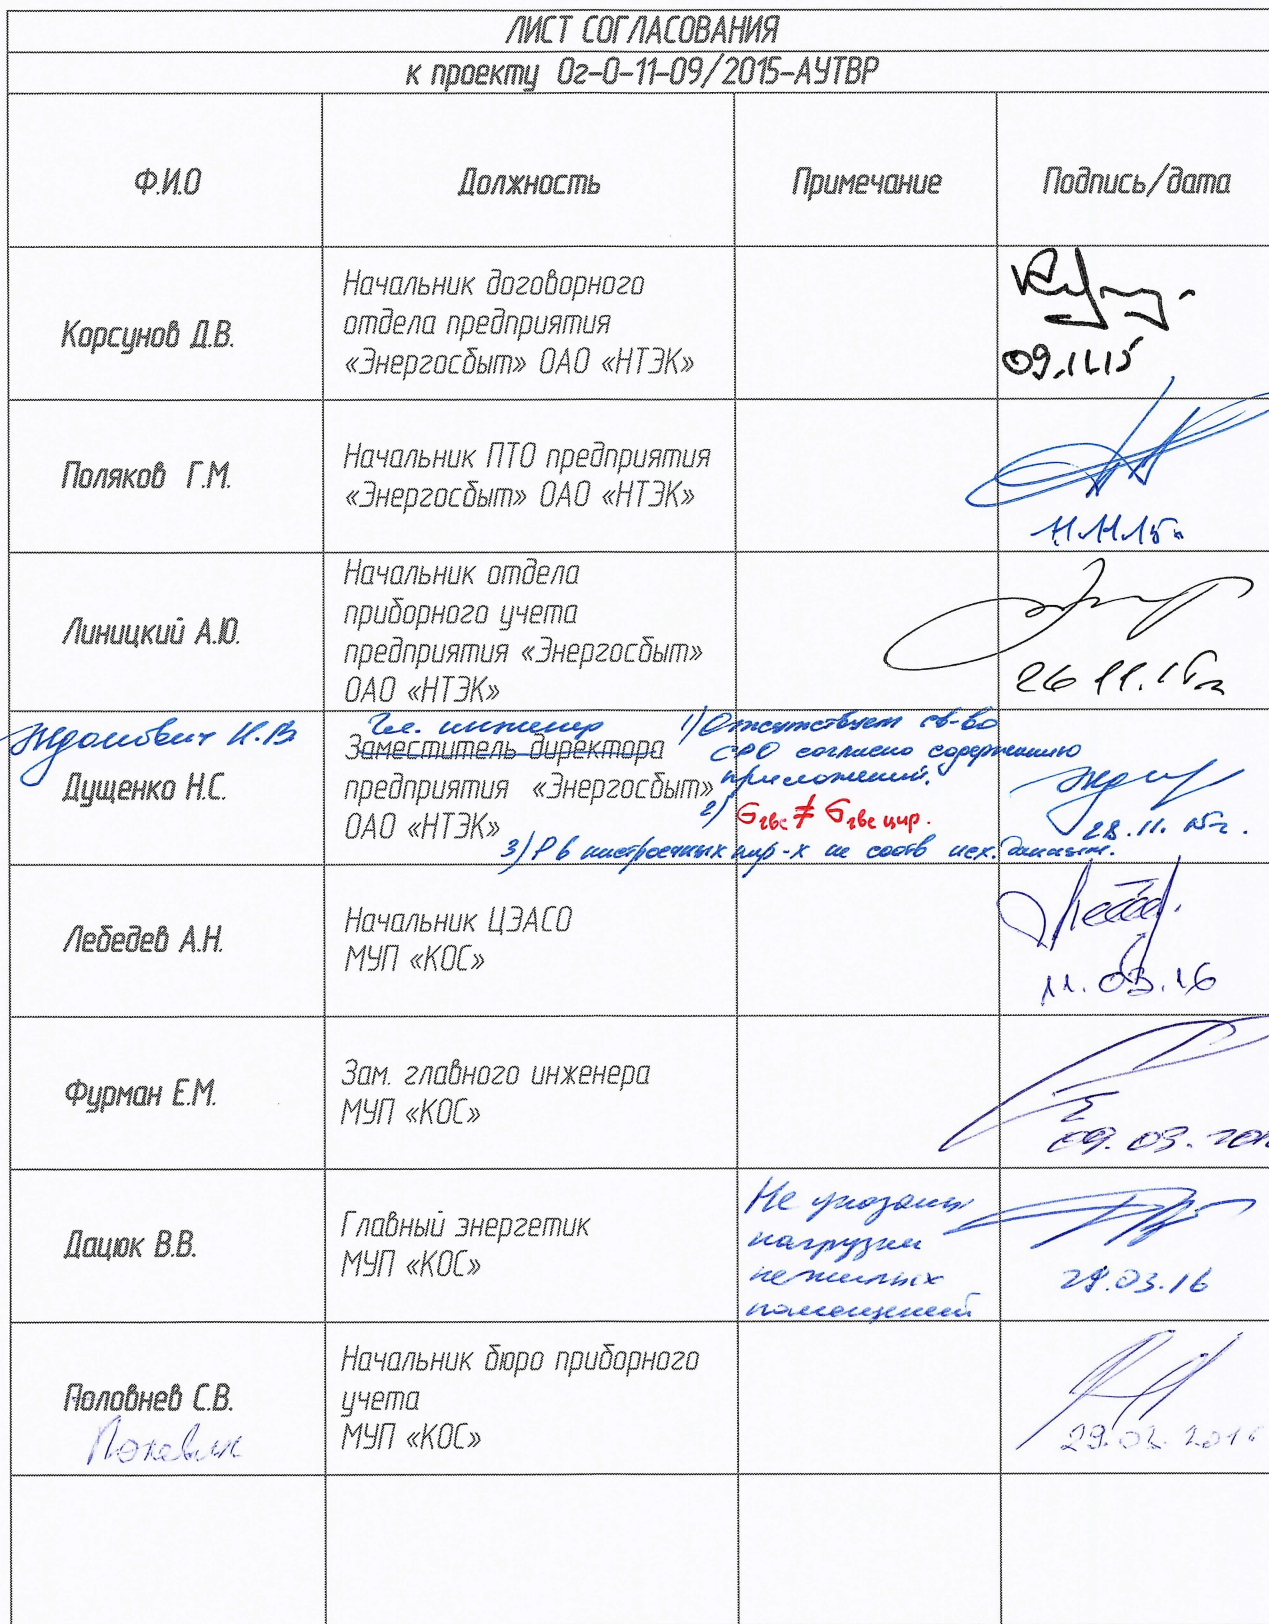 ЛИСТ СОГЛАСОВАНИЯ
к проекту Ог-0-11-09/2015-АУТВР
Ф.И.О
Должность
Примечание
Подпись/дата
Корсунов Д.В.
Начальник договорного
отдела предприятия
«Энергосбыт» ОАО «НТЭК»
09.11.15
Поляков Г.М.
Начальник ПТО предприятия
«Энергосбыт» ОАО «НТЭК»
11.11.15г
Линицкий А.Ю.
Начальник отдела
приборного учета
предприятия «Энергосбыт»
ОАО «НТЭК»
26.11.15г
Ждонович Н.В.
Дущенко Н.С.
Гл. инженер
Заместитель директора
предприятия «Энергосбыт»
ОАО «НТЭК»
1) Отсутствует св-во
СРО согласно содержанию
приложений.
2) Gгвс ≠ Gгвс цир.
3) Р в настроечных пар-х не соотв исх. данным.
28.11.15г.
Лебедев А.Н.
Начальник ЦЭАСО
МУП «КОС»
11.03.16
Фурман Е.М.
Зам. главного инженера
МУП «КОС»
09.03.201
Дацюк В.В.
Главный энергетик
МУП «КОС»
Не указаны
нагрузки
нежилых
помещений
29.03.16
Половнев С.В.
Начальник бюро приборного
учета
МУП «КОС»
29.02.201